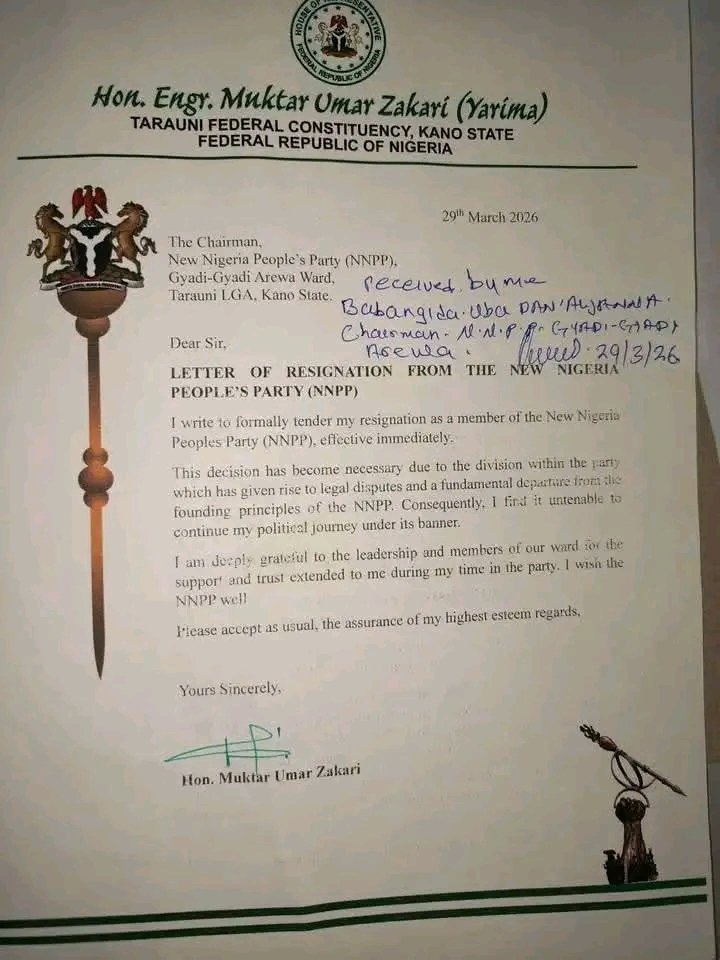 HOUSE OF REPRESENTATIVE
FEDERAL REPUBLIC OF NIGERIA
Hon. Engr. Muktar Umar Zakari (Yarima)
TARAUNI FEDERAL CONSTITUENCY, KANO STATE
FEDERAL REPUBLIC OF NIGERIA
29th March 2026
The Chairman,
New Nigeria People's Party (NNPP),
Gyadi-Gyadi Arewa Ward,
Tarauni LGA, Kano State.
received by me
Babangida Uba DAN'ALJANNA.
Chairman. N.N.P.P. GYADI-GYADI
Arewa. 29/3/26
Dear Sir,
LETTER OF RESIGNATION FROM THE NEW NIGERIA
PEOPLE'S PARTY (NNPP)
I write to formally tender my resignation as a member of the New Nigeria
Peoples Party (NNPP), effective immediately.
This decision has become necessary due to the division within the party
which has given rise to legal disputes and a fundamental departure from the
founding principles of the NNPP. Consequently, I find it untenable to
continue my political journey under its banner.
I am deeply grateful to the leadership and members of our ward for the
support and trust extended to me during my time in the party. I wish the
NNPP well
Please accept as usual, the assurance of my highest esteem regards,
Yours Sincerely,
Hon. Muktar Umar Zakari